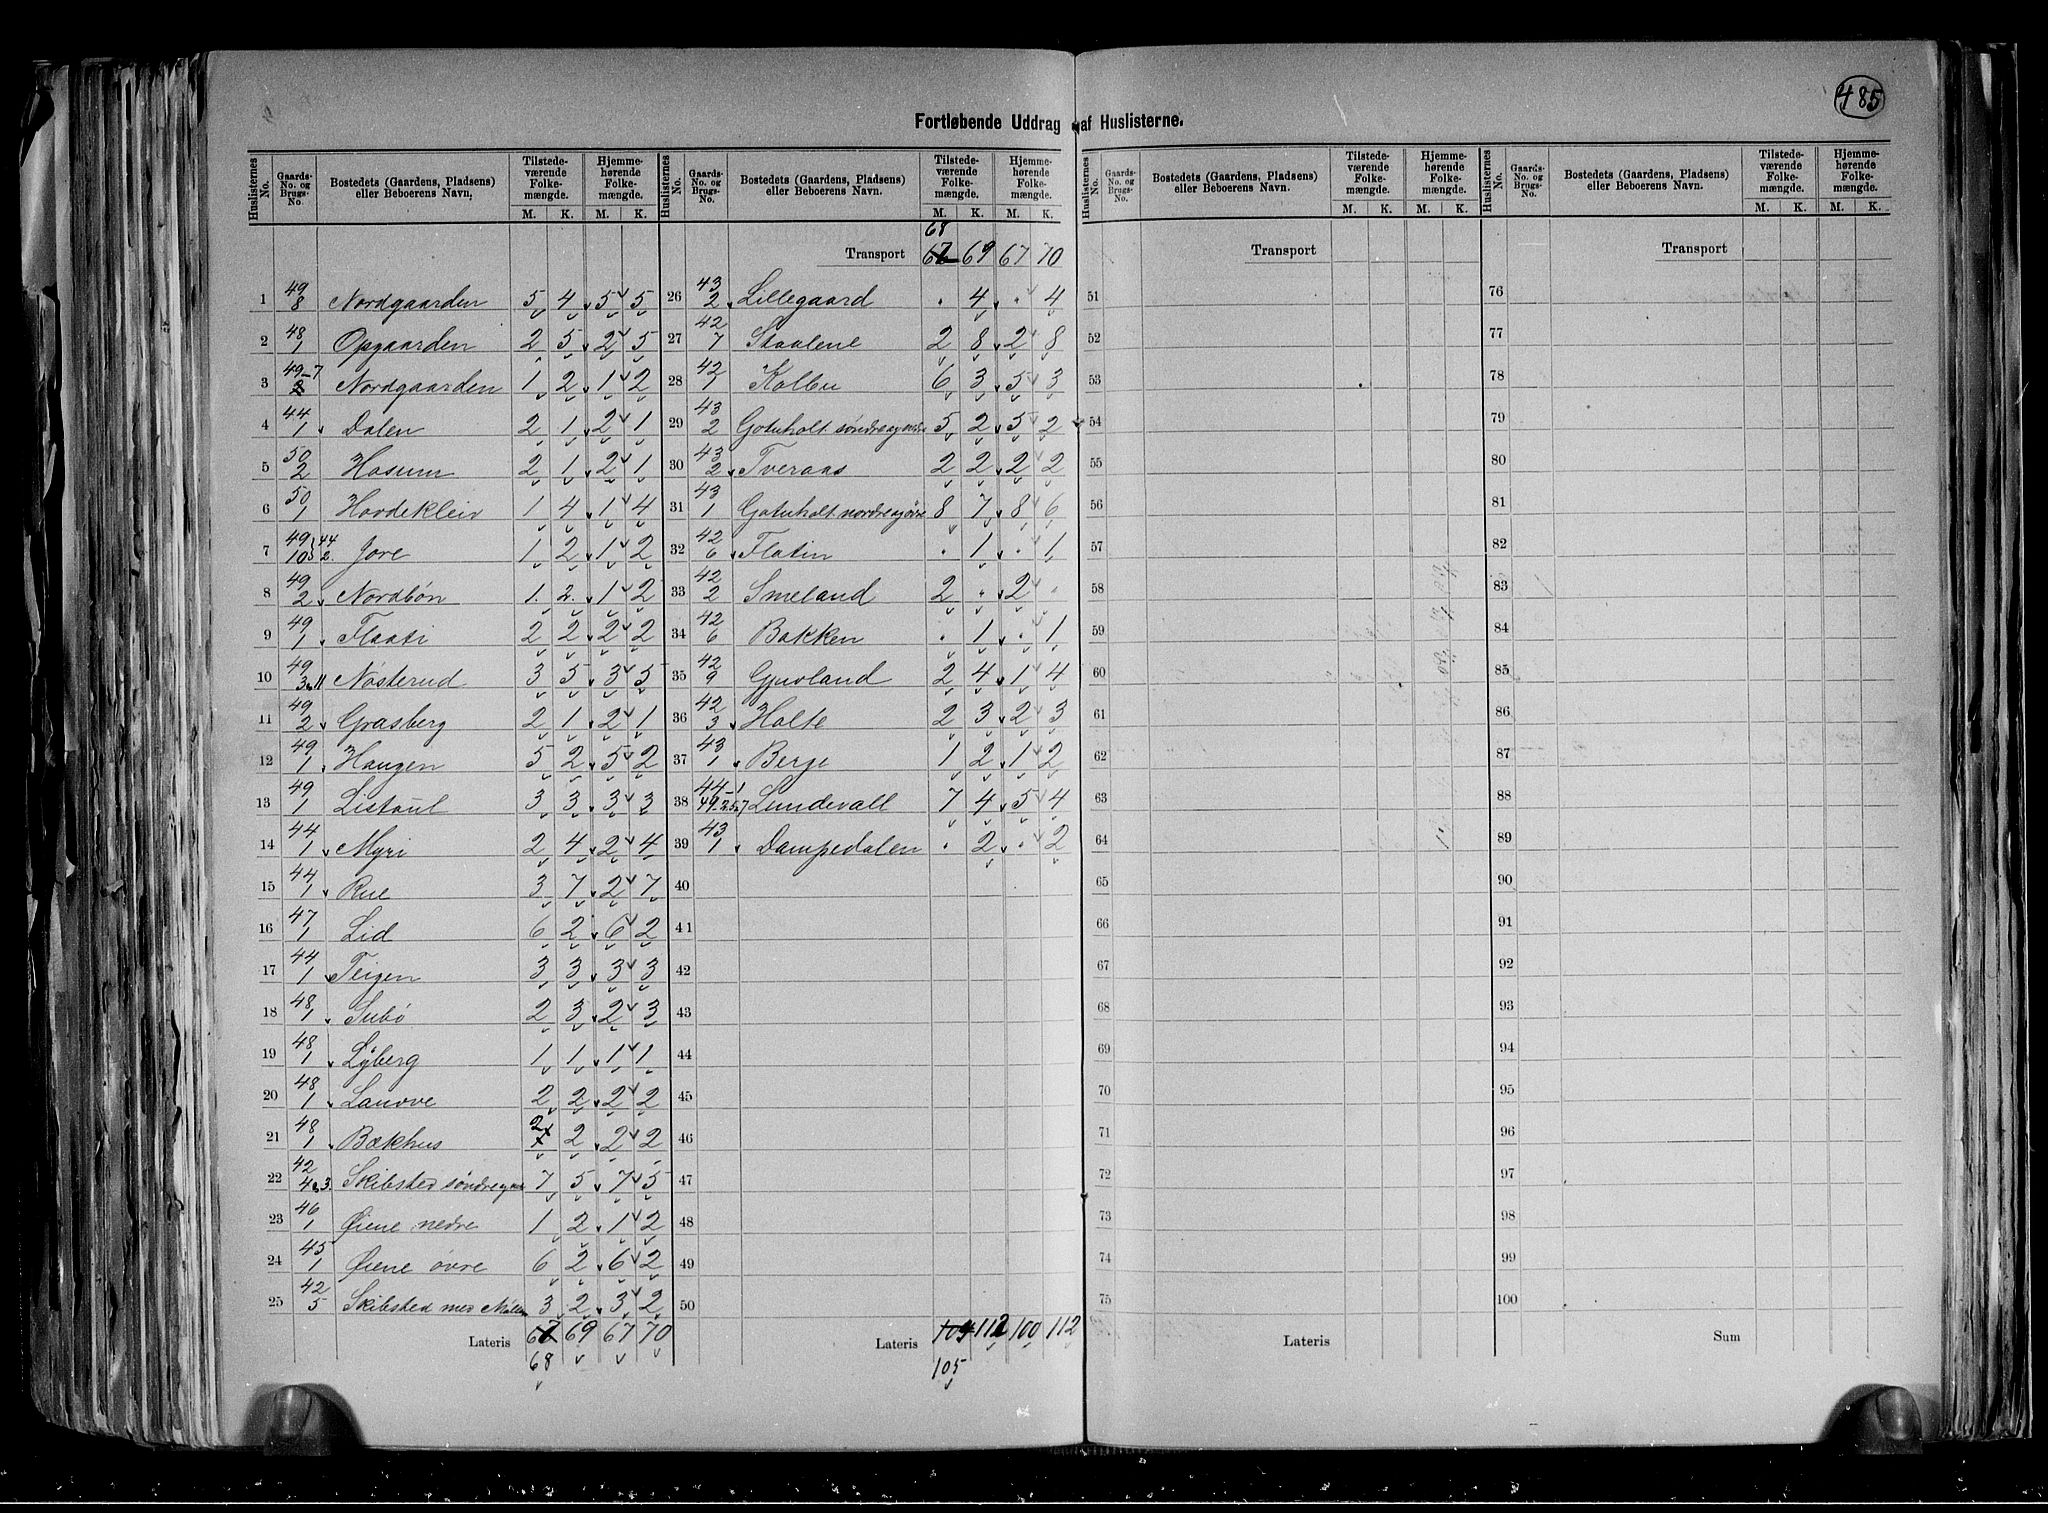 485
Fortløbende Uddrag af Huslisterne.
Huslisternes No. | Gaards-No. og Brugs-No. | Bostedets (Gaardens, Pladsens) eller Beboerens Navn. | Tilstedeværende Folkemængde. M. K. | Hjemmehørende Folkemængde. M. K.
1 49/8 Nordgaarden 5 4 5 5
2 48/1 Opgaarden 2 5 2 5
3 49-7 Nordgaarden 1 2 1 2
4 44/1 Dalen 2 1 2 1
5 50/2 Hasum 2 1 2 1
6 50/1 Hardekleiv 1 4 1 4
7 49/10 44/2 Jore 1 2 1 2
8 49/2 Nordbøn 1 2 1 2
9 49/1 Flaati 2 2 2 2
10 49/3,11 Nøsterud 3 5 3 5
11 49/2 Grasberg 2 1 2 1
12 49/1 Haugen 5 2 5 2
13 49/1 Listaul 3 3 3 3
14 44/1 Myri 2 4 2 4
15 44/1 Rue 3 7 2 7
16 47/1 Lid 6 2 6 2
17 44/1 Teigen 3 3 3 3
18 48/1 Subø 2 3 2 3
19 48/1 Lyberg 1 1 1 1
20 48/1 Lauove 2 2 2 2
21 48/1 Bækhus 2 2 2 2
22 42/4,3 Skibsted søndre 7 5 7 5
23 46/1 Øiene nedre 1 2 1 2
24 45/1 Øiene øvre 6 2 6 2
25 42/5 Skibsted med 3 2 3 2
Lateris 67 69 67 70
68
Huslisternes No. | Gaards-No. og Brugs-No. | Bostedets (Gaardens, Pladsens) eller Beboerens Navn. | Tilstedeværende Folkemængde. M. K. | Hjemmehørende Folkemængde. M. K.
68
Transport 67 69 67 70
26 43/2 Lillegaard . 4 . 4
27 42/7 Staalene 2 8 2 8
28 42/1 Kolbu 6 3 5 3
29 43/2 Gotuholt søndre 5 2 5 2
30 43/2 Tveraas 2 2 2 2
31 43/1 Gotuholt nordre 8 7 8 6
32 42/6 Flatin . 1 . 1
33 42/2 Smeland 2 . 2 .
34 42/6 Bakken . 1 . 1
35 42/9 Gjuvland 2 4 1 4
36 42/3 Holte 2 3 2 3
37 43/1 Berge 1 2 1 2
38 44-1 Lundevall 7 4 5 4
39 43/1 Dampedalen . 2 . 2
40
41
42
43
44
45
46
47
48
49
50
Lateris 104 112 100 112
105
Huslisternes No. | Gaards-No. og Brugs-No. | Bostedets (Gaardens, Pladsens) eller Beboerens Navn. | Tilstedeværende Folkemængde. M. K. | Hjemmehørende Folkemængde. M. K.
Transport
51
52
53
54
55
56
57
58
59
60
61
62
63
64
65
66
67
68
69
70
71
72
73
74
75
Lateris
Huslisternes No. | Gaards-No. og Brugs-No. | Bostedets (Gaardens, Pladsens) eller Beboerens Navn. | Tilstedeværende Folkemængde. M. K. | Hjemmehørende Folkemængde. M. K.
Transport
76
77
78
79
80
81
82
83
84
85
86
87
88
89
90
91
92
93
94
95
96
97
98
99
100
Sum